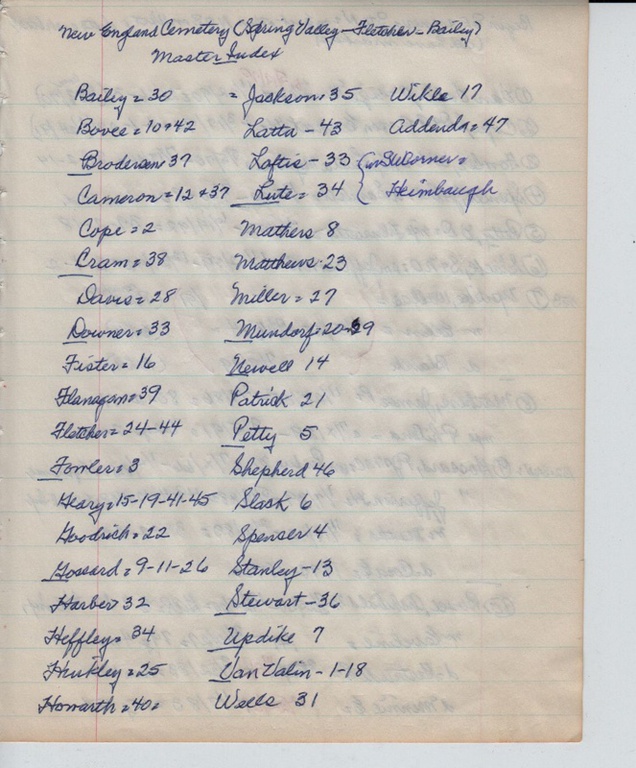 New England Cemetery (Spring Valley - Fletcher - Bailey)
Master Index
Bailey = 30
Bovee = 10 + 42
Brodersen = 37
Cameron = 12 + 37
Cope = 2
Cram = 38
Davis = 28
Downer = 33
Fister = 16
Flanagan = 39
Fletcher = 24-44
Fowler = 3
Heary = 15-19-41-45
Goodrich = 22
Gossard = 9-11-26
Harber 32
Heffley = 34
Hinkley = 25
Howarth = 40 =
= Jackson = 35
Latta - 43
Loftis - 33
Lute = 34
Mathers 8
Matthews - 23
Miller = 27
Mundorf = 20-29
Newell 14
Patrick 21
Petty - 5
Shepherd 46
Slack 6
Spenser 4
Stanley - 13
Stewart - 36
Updike 7
Van Valin - 1-18
Wells 31
Wikle 17
Addenda = 47
{ in SW Corner =
Heimbaugh